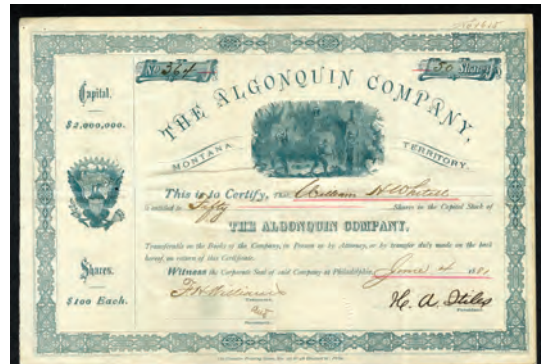 No 364
50 Shares
Capital.
$2,000,000.
THE ALGONQUIN COMPANY,
MONTANA TERRITORY.
This is to Certify, that William H Whitall
is entitled to Fifty Shares in the Capital Stock of
THE ALGONQUIN COMPANY,
Transferable on the Books of the Company, in Person or by Attorney, or by transfer duly made on the back
hereof on return of this Certificate.
Witness the Corporate Seal of said Company at Philadelphia, June 4 1881
Shares.
$100 Each.
H. A. Stiles
President.